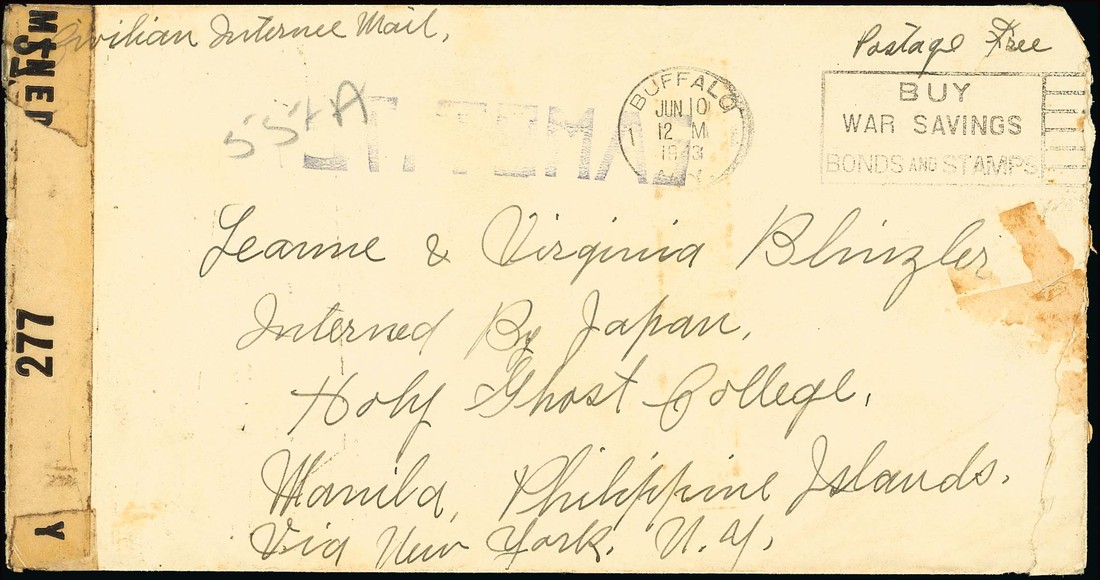 Civilian Internee Mail,
Postage Free
55+A
BUFFALO
JUN 10
12 M
1943
N.Y.
1
BUY
WAR SAVINGS
BONDS AND STAMPS
Leanne & Virginia Blinzler
Interned By Japan,
Holy Ghost College,
Manila, Philippine Islands.
Via New York, N.Y,
277
Y